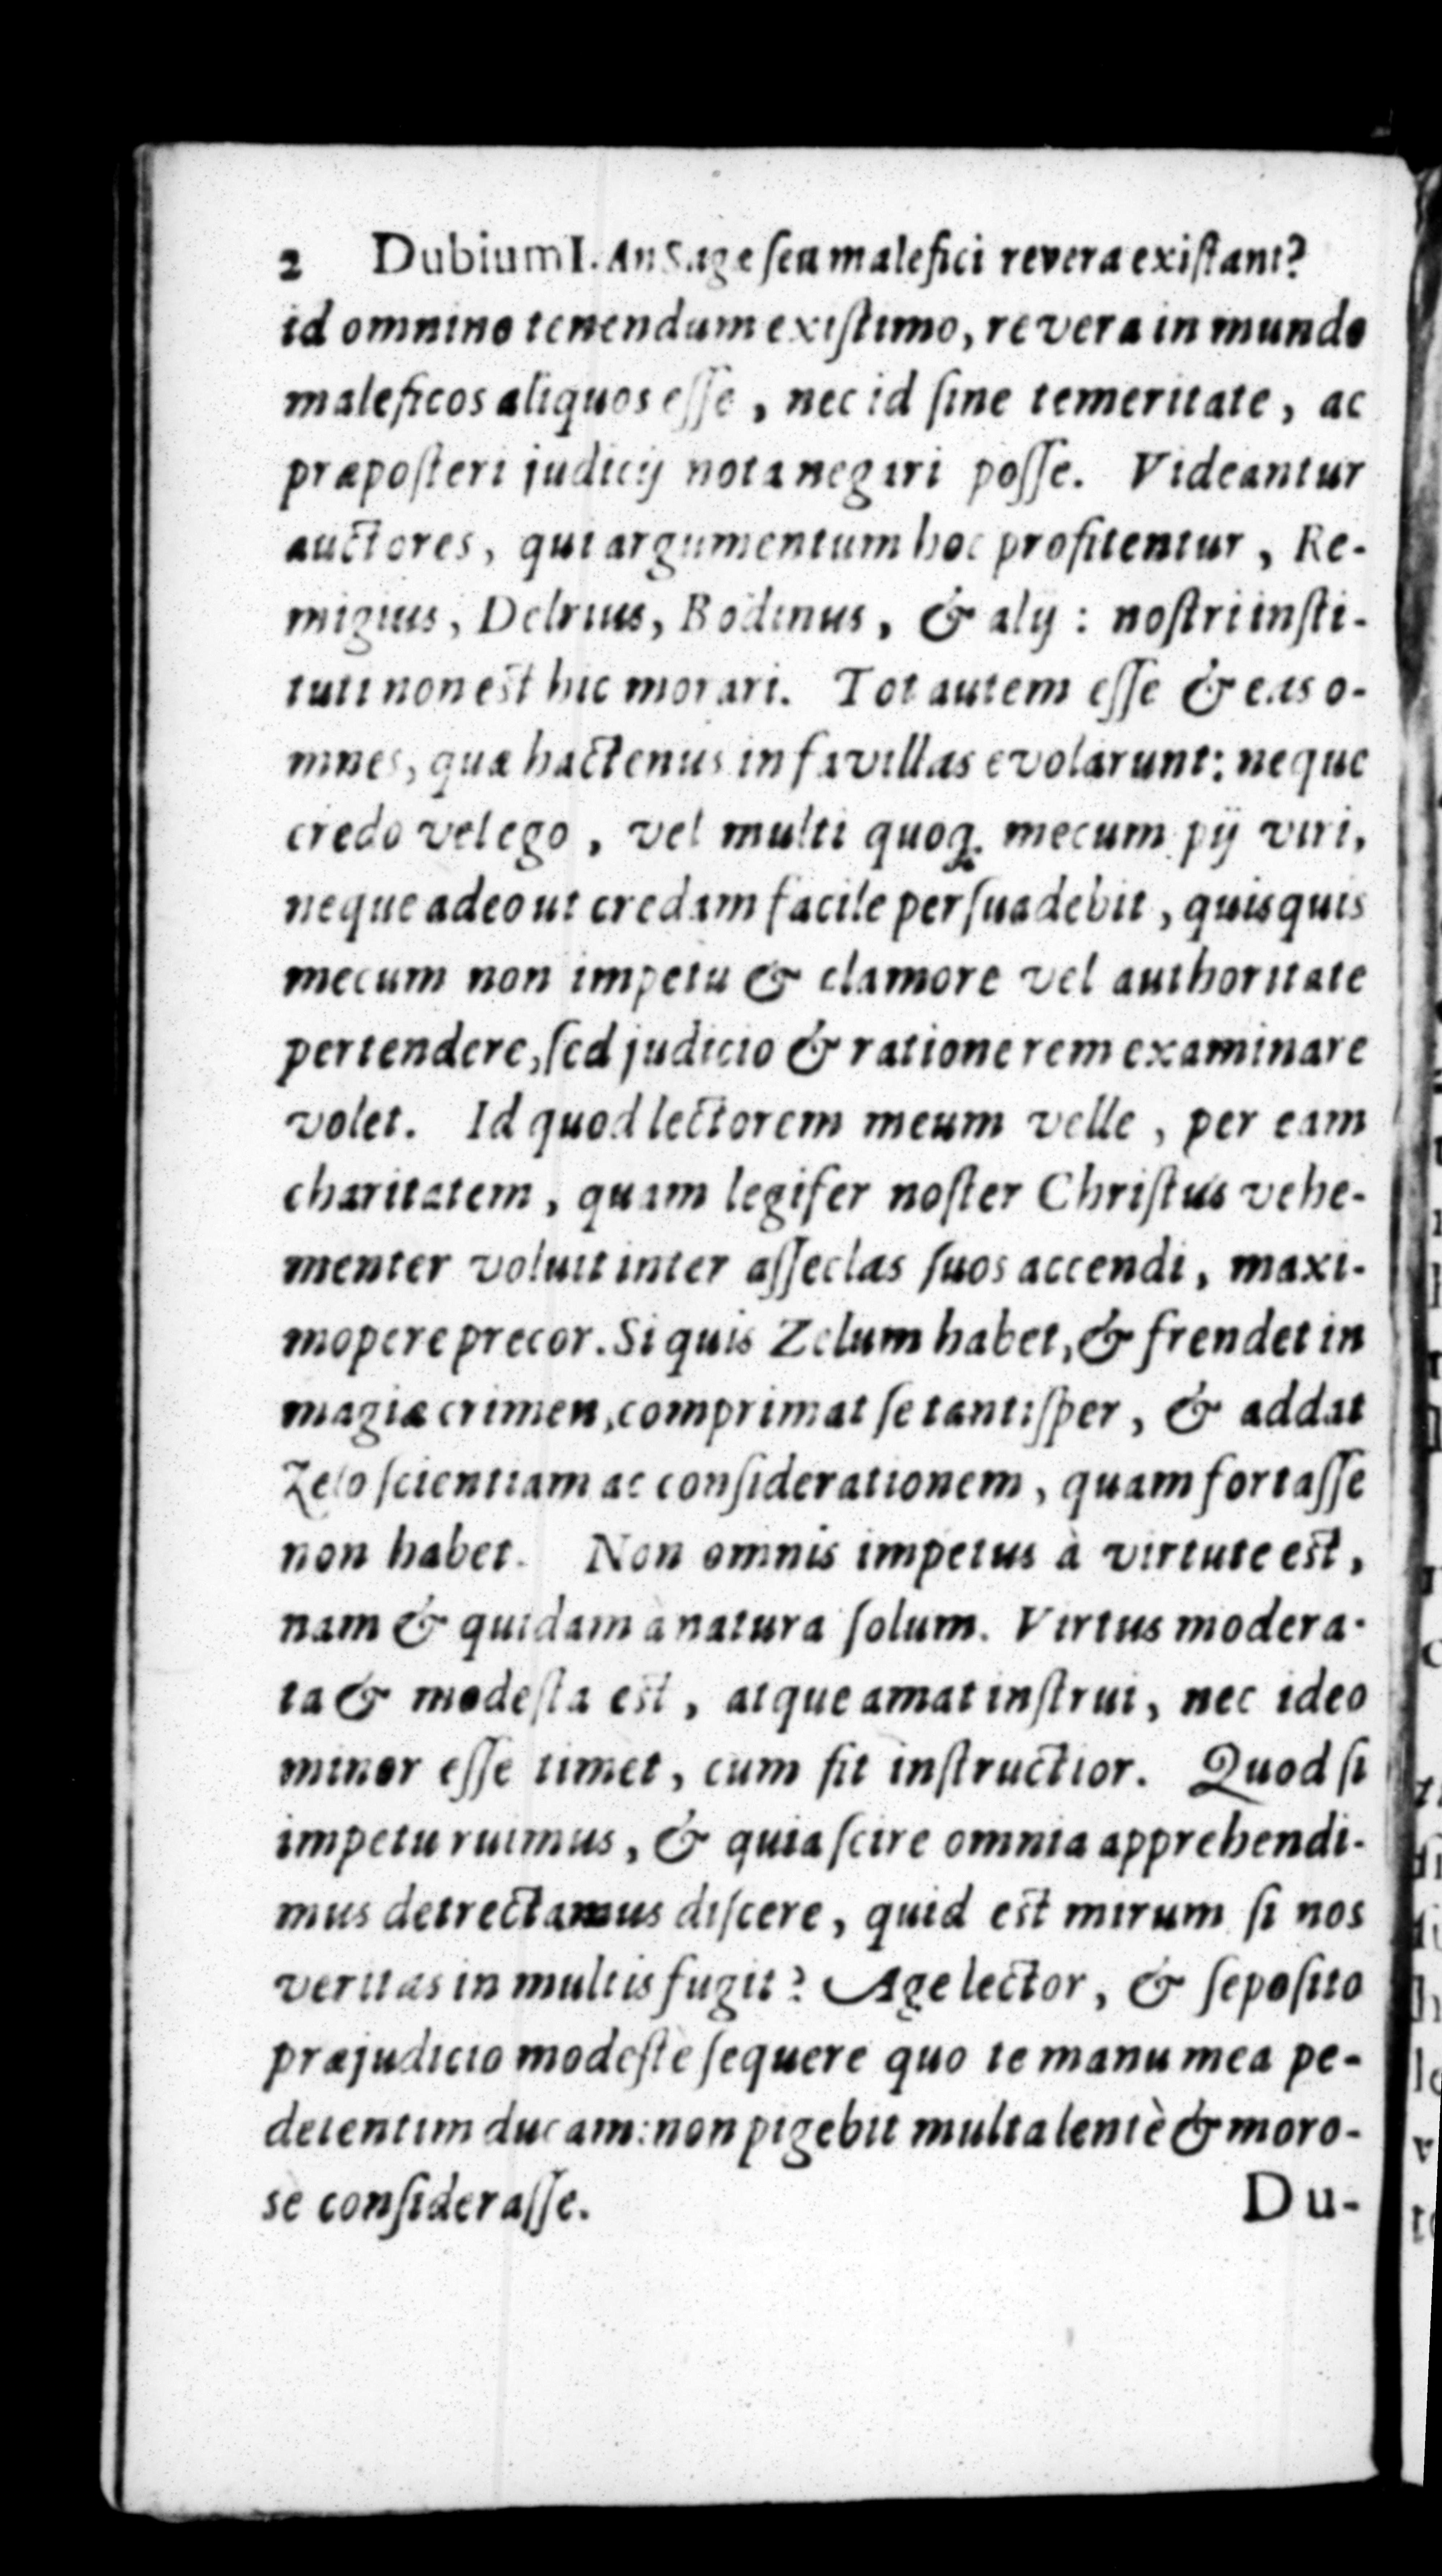 2 Dubium I. An Sagæ ſeu malefici revera exiſtant?
id omnino tenendum exiſtimo, revera in mundo
maleficos aliquos eſſe, nec id ſine temeritate, ac
præpoſteri judicij nota negari poſſe. Videantur
auctores, qui argumentum hoc profitentur, Re-
migius, Delrius, Bodinus, & alij: noſtri inſti-
tuti non est hic morari. Tot autem eſſe & eas o-
mnes, quæ hactenus in favillas evolarunt: neque
credo vel ego, vel multi quoq. mecum pij viri,
neque adeo ut credam facile perſuadebit, quisquis
mecum non impetu & clamore vel authoritate
pertendere, ſed judicio & ratione rem examinare
volet. Id quod lectorem meum velle, per eam
charitatem, quam legifer noſter Chriſtus vehe-
menter voluit inter aſſeclas ſuos accendi, maxi-
mopere precor. Si quis Zelum habet, & frendet in
magiæ crimen, comprimat ſe tantiſper, & addat
Zelo ſcientiam ac conſiderationem, quam fortaſſe
non habet. Non omnis impetus à virtute est,
nam & quidam à natura ſolum. Virtus modera-
ta & modeſta est, atque amat inſtrui, nec ideo
minor eſſe timet, cum fit inſtructior. Quod ſi
impetu ruimus, & quia ſcire omnia apprehendi-
mus detrectamus diſcere, quid est mirum ſi nos
veritas in multis fugit? Age lector, & ſepoſito
præjudicio modeſtè ſequere quo te manu mea pe-
detentim ducam: non pigebit multa lentè & moro-
se conſideraſſe.
Du-